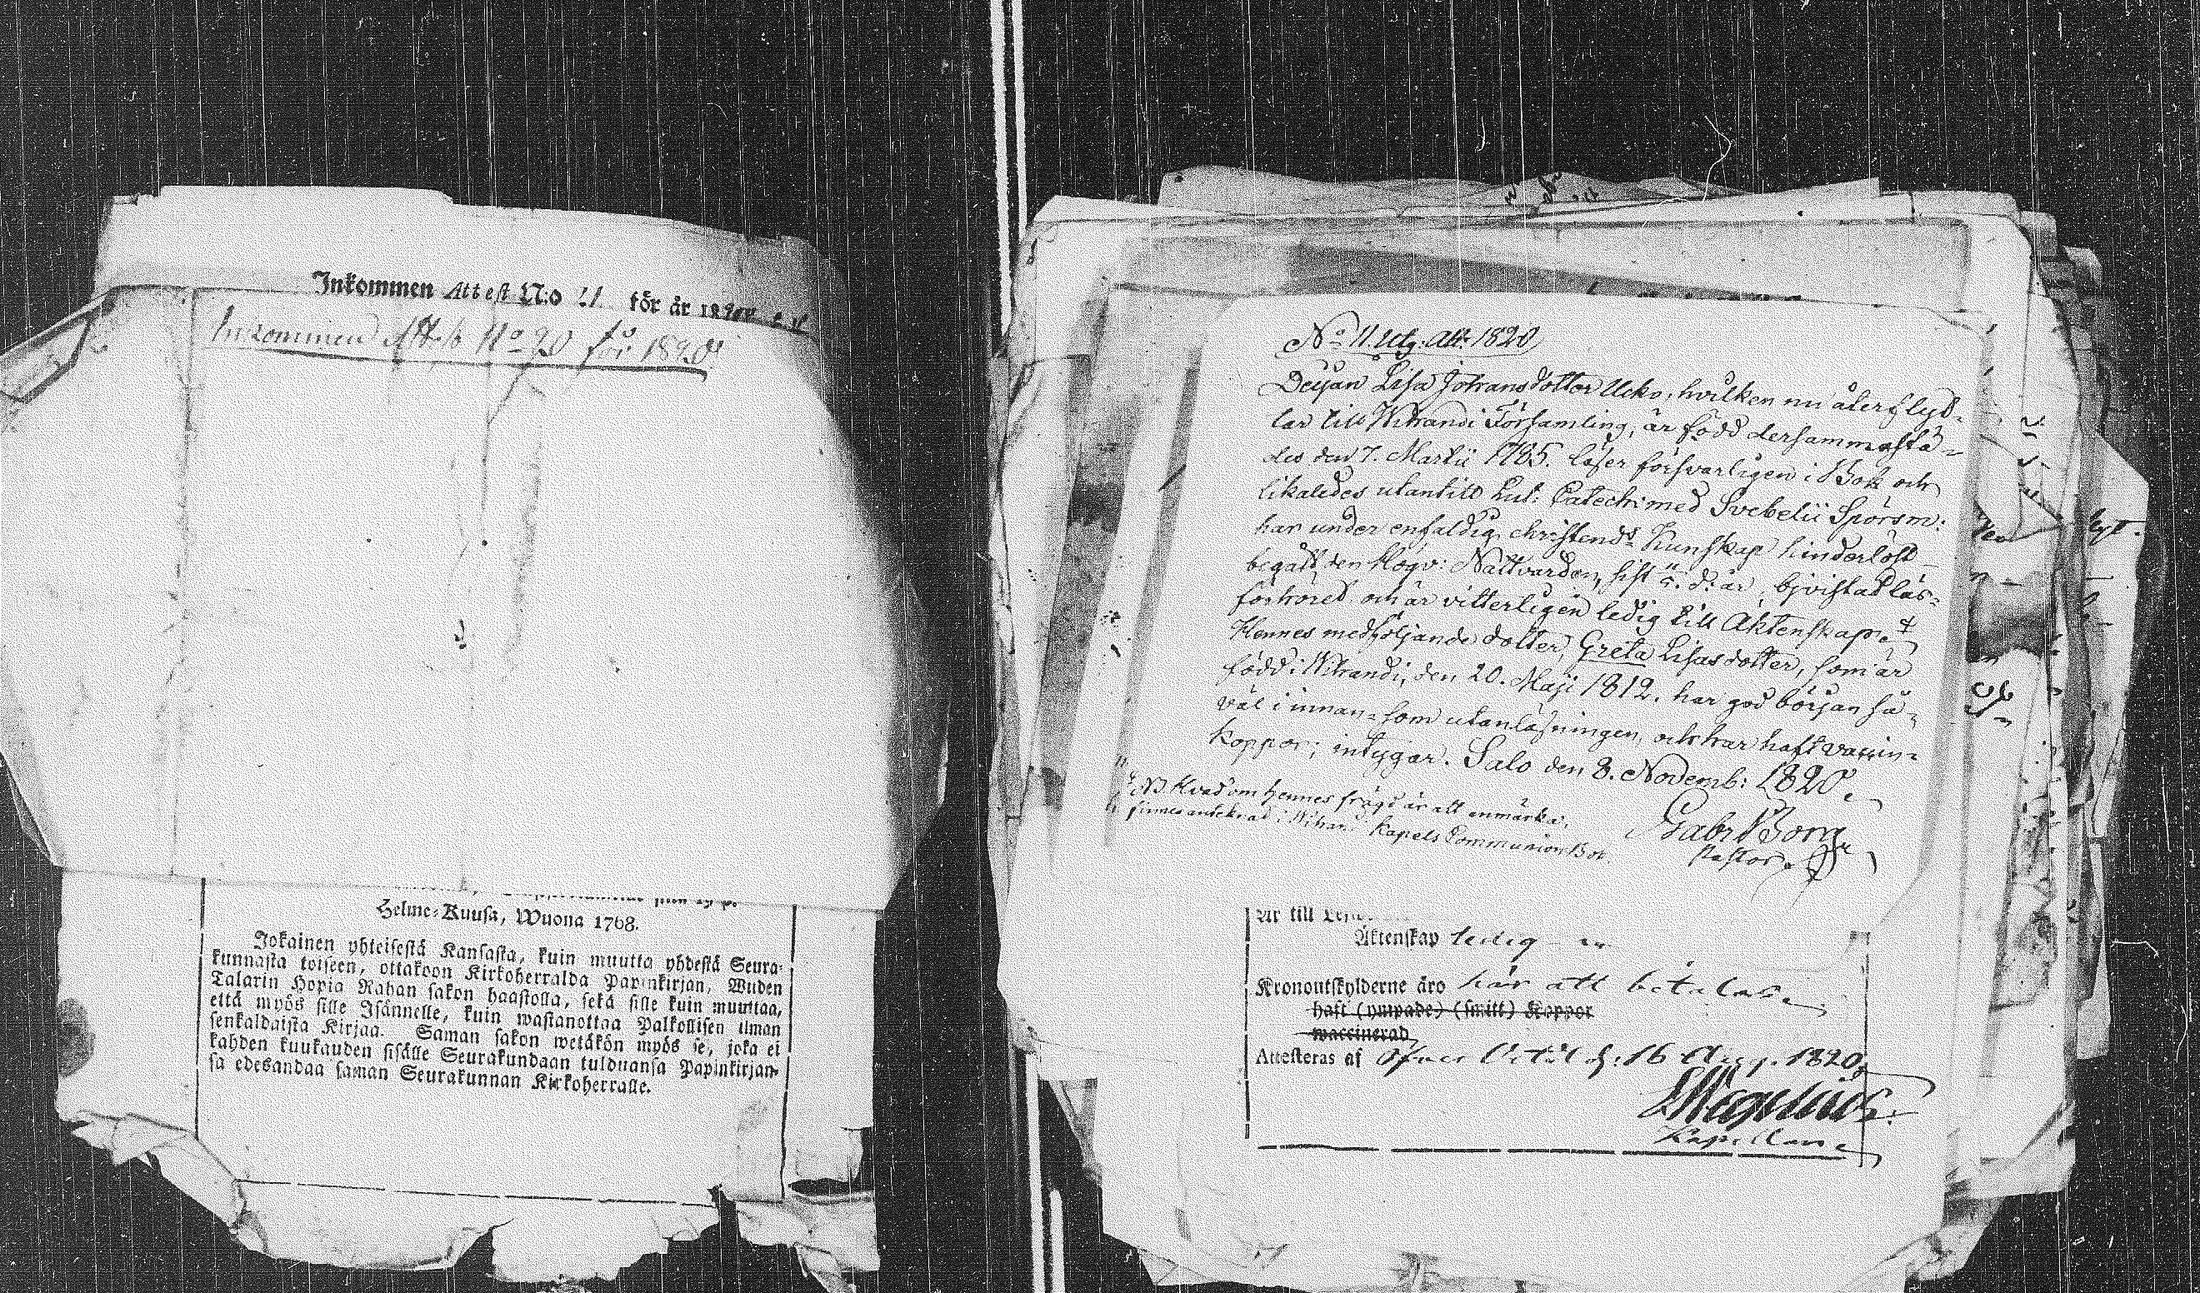 Inkommen Attest N:o 21 för år 1820
Inkommen Attest No 20 för 1820
Helme-Kuusa, Wuona 1768.
Jokainen yhteisestä Kansasta, kuin muutta yhdestä Seura-
kunnasta toiseen, ottakoon Kirkoherralda Papinkirjan, Wuden
Talarin Hopia Rahan sakon haastolla, sekä sille kuin muuttaa,
että myös sille Isännelle, kuin wastanottaa Palkollisen ilman
senkaldaista Kirjaa. Saman sakon wetäkön myös se, joka ei
kahden kuukauden sisälle Seurakundaan tulduansa Papinkirjan-
sa edesandaa saman Seurakunnan Kirkoherralle.
No 11. utg. Att: 1820
Deijan Lisa Johansdotter Ucko, hvilken nu återflyt-
tar till Wihandi Församling, är född dersammastä-
des den 7. Martii 1785. läser försvarligen i Bok och
likaledes utantill Lut: Catech: med Svebelii Spörsm:
har under enfaldig christend: Kunskap hinderlöst
begått den Högv: Nattvarden, sist d: år, bjvistat läs-
förhöret och är vitterligen ledig till Äktenskap.
Hennes medföljande dotter, Greta Lisasdotter, som är
född i Wihandi, den 20. Maji 1812. har god början så-
väl i innan- som utanläsningen, och har haft vaccin-
koppor; intygar. Salo den 8. Novemb: 1820.
Gabr Borg
Pastor.
NB. Hvad om hennes frägd är att anmärka,
finnes antecknad i Wihandi Kapels Communion Bok.
Är till
Äktenskap ledig
Kronoutskylderne äro här att betalas
haft (ympade) (smitt) Koppor
vaccinerad
Attesteras af Öfver Vetil d: 16 Aug. 1820.
Kapellan